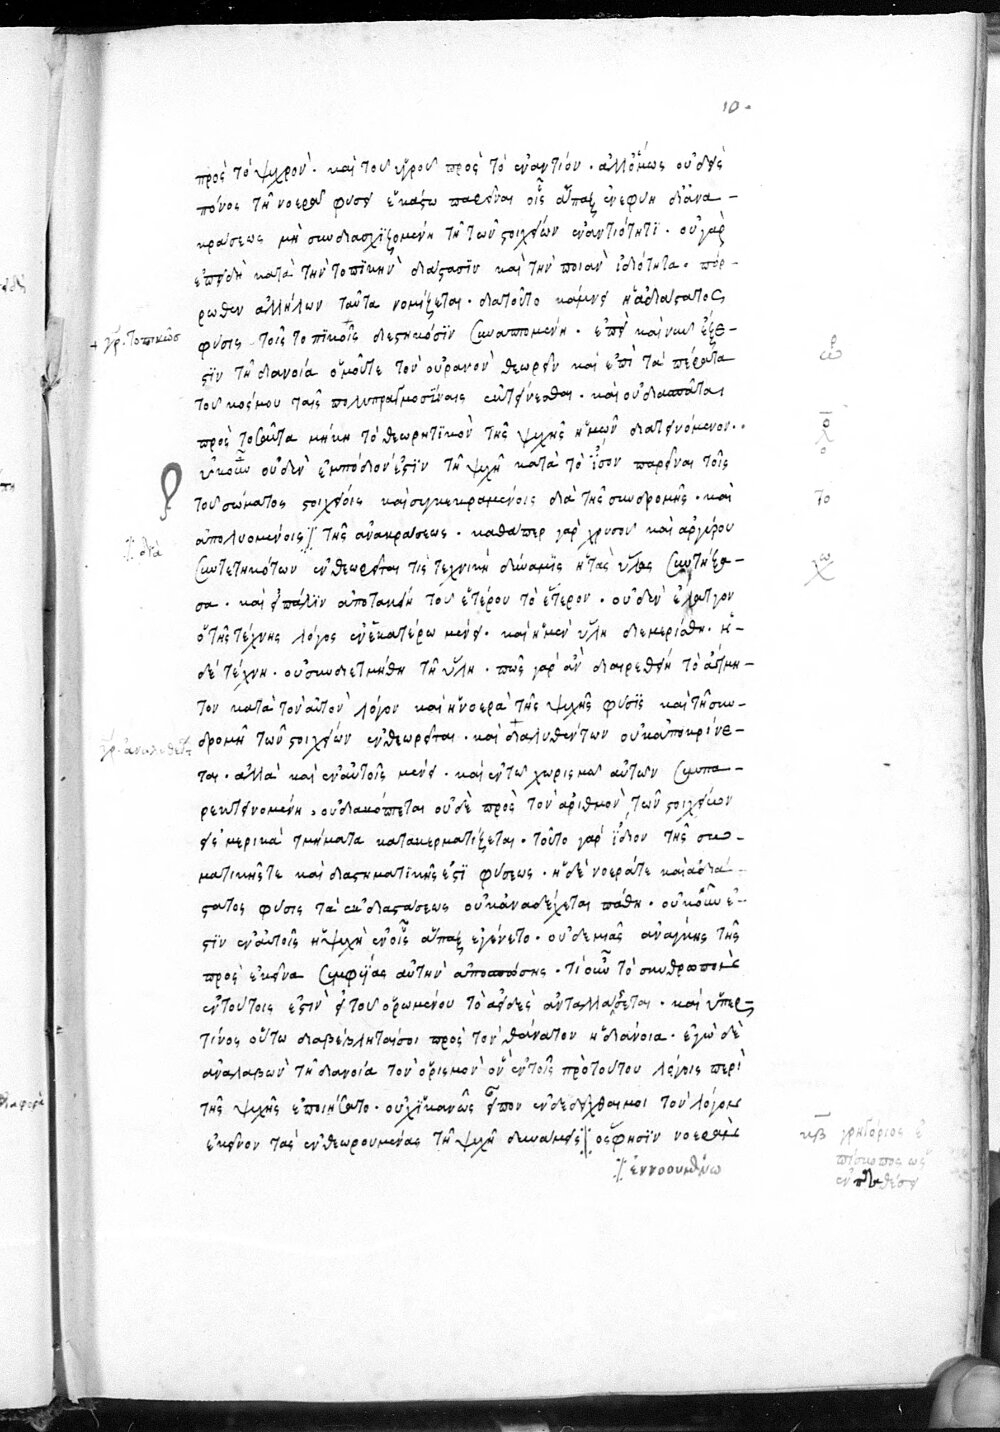 10.
πρὸς τὸ ψυχρὸν. καὶ τοῦ ὑγροῦ πρὸς τὸ ἐναντίον. ἀλλόμως οὐδεὶς
πόνος τῆ νοερᾶ φύσει ἑκάστω παρεῖναι οἷς ἅπαξ ἐνεφύη διὰ ἀνα-
κράσεως μὴ συνδιασχιζομένη τῆ τῶν στοιχείων ἐναντιότητι. οὐ γὰρ
ἐπειδὴ κατὰ τὴν τοπικὴν διάστασιν καὶ τὴν ποιὰν ἰδιότητα. πόρ-
ρωθεν ἀλλήλων ταῦτα νομίζεται. διατοῦτο κάμνει ἡ ἀδιάστατος
+ γρ. τοπικῶς
φύσις τοῖς τοπικοῖς διεστηκόσιν συναπτομένη. ἐπεὶ καὶ νῦν ἔξε-
στιν τῆ διανοία ὁμοῦτε τὸν οὐρανὸν θεωρεῖν καὶ ἐπὶ τὰ πέρατα
τοῦ κόσμου ταῖς πολυπραγμοσύναις ἐκτείνεσθαι. καὶ οὐ διασπᾶται
πρὸς τοσαῦτα μήκη τὸ θεωρητικὸν τῆς ψυχῆς ἡμῶν διατεινόμενον..
οὐκοῦν οὐδὲν ἐμπόδιον ἐστὶν τῆ ψυχῆ κατὰ τὸ ἴσον παρεῖναι τοῖς
τοῦ σώματος στοιχείοις καὶ συγκεκραμένοις διὰ τῆς συνδρομῆς. καὶ
διὰ
ἀπολυομένοις τῆς ἀνακράσεως. καθάπερ γὰρ χρυσοῦ καὶ ἀργύρου
συντετηκότων ἐνθεωρεῖται τις τεχνικὴ δύναμις ἡ τὰς ὕλας συντήξα-
σα. καὶ εἰ πάλιν ἀποτακείη τοῦ ἑτέρου τὸ ἕτερον. οὐδὲν ἔλαττον
ὁ τῆς τέχνης λόγος ἐν ἑκατέρω μένει. καὶ ἡ μὲν ὕλη διεμερίσθη. ἡ
δὲ τέχνη. οὐ συνδιετμήθη τῆ ὕλη. πῶς γὰρ ἂν διαιρεθείη τὸ ἄτμη-
τον κατὰ τὸν αὐτὸν λόγον καὶ ἡ νοερὰ τῆς ψυχῆς φύσις καὶ τῆ συν-
δρομῆ τῶν στοιχείων ἐνθεωρεῖται. καὶ διαλυθέντων οὐκ ἀποκρίνε-
ται. ἀλλὰ καὶ ἐν αὐτοῖς μένει. καὶ ἐν τῶ χωρισμῶ αὐτῶν συμπα-
ρεκτεινομένη, οὐ διακόπτεται οὐδὲ πρὸς τὸν ἀριθμὸν τῶν στοιχείων
εἰς μερικὰ τμήματα κατακερματίζεται. τοῦτο γὰρ ἴδιον τῆς σω-
ματικῆς τε καὶ διαστηματικῆς ἐστὶ φύσεως. ἡ δὲ νοερά τε καὶ ἀδιά-
στατος φύσις τὰ ἐκ διαστάσεως οὐκ ἀναδέχεται πάθη. οὐκοῦν ἐ-
στὶν ἐν αὐτοῖς ἡ ψυχὴ ἐν οἷς ἅπαξ ἐγένετο. οὐδεμιᾶς ἀνάγκης τῆς
πρὸς ἐκεῖνα συμφυΐας αὐτὴν ἀποσπώσης. τί οὖν τὸ σκυθρωπὸν
ἐν τούτοις ἐστὶν εἰ τοῦ ὁρωμένου τὸ ἀειδὲς ἀνταλλάσσεται. καὶ ὑπέρ
τίνος οὕτω διαβέβληταί σοι πρὸς τὸν θάνατον ἡ διάνοια. ἐγὼ δὲ
ἀναλαβὼν τῆ διανοία τὸν ὁρισμὸν ὃν ἐν τοῖς πρὸ τούτου λόγοις περὶ
τῆς ψυχῆς ἐποιήσατο. οὐχ ἱκανῶς εἶπον ἐνδεδεῖχθαί μοι τὸν λόγον
ἐκεῖνον τὰς ἐνθεωρουμένας τῆ ψυχῆ δυνάμεις ὅς φησὶν νοερὰν
ἐννοουμένω
κβ γρηγόριος ἐ
πίσκοπος ὡς